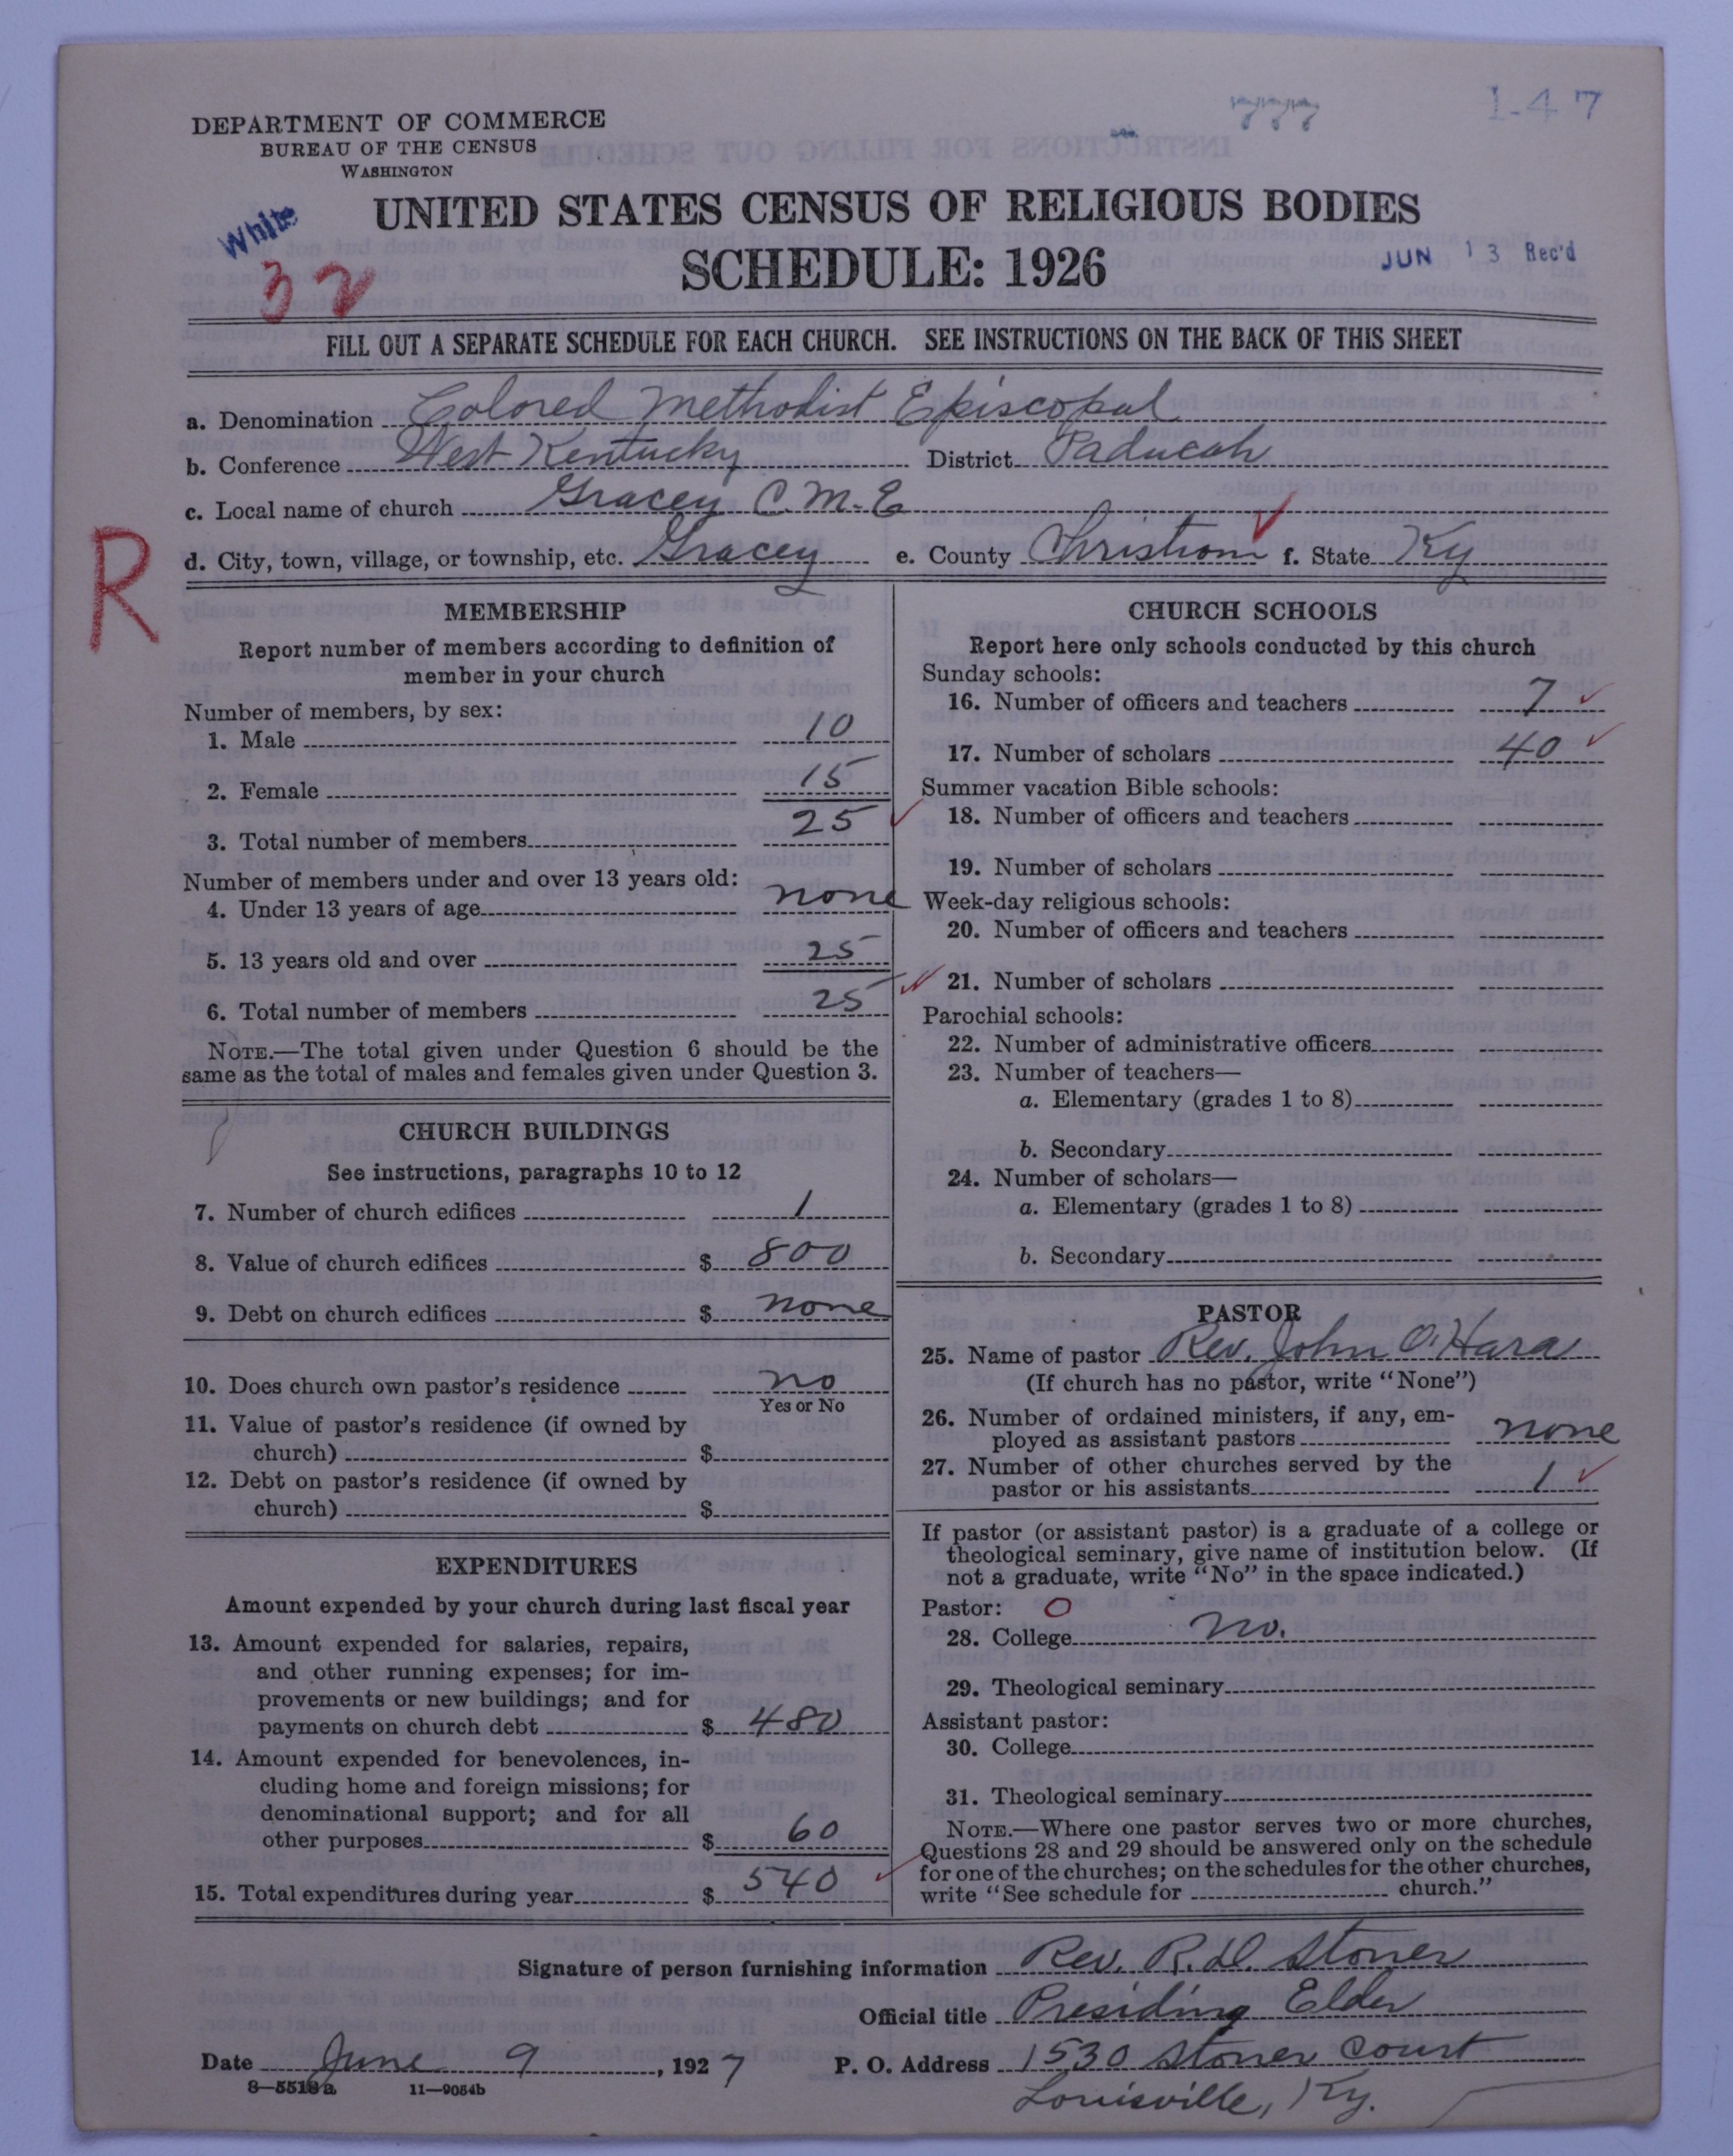 1-47
DEPARTMENT OF COMMERCE
BUREAU OF THE CENSUS
WASHINGTON
UNITED STATES CENSUS OF RELIGIOUS BODIES
SCHEDULE: 1926
White
32
JUN 13 Rec'd
FILL OUT A SEPARATE SCHEDULE FOR EACH CHURCH. SEE INSTRUCTIONS ON THE BACK OF THIS SHEET
a. Denomination Colored Methodist Episcopal
b. Conference West Kentucky District Paducah
c. Local name of church Gracey C.M.E
d. City, town, village, or township, etc. Gracey e. County Christian f. State Ky
R
MEMBERSHIP
Report number of members according to definition of
member in your church
Number of members, by sex:
1. Male 10
2. Female 15
3. Total number of members 25
Number of members under and over 13 years old:
4. Under 13 years of age none
5. 13 years old and over 25
6. Total number of members 25
NOTE.—The total given under Question 6 should be the
same as the total of males and females given under Question 3.
CHURCH BUILDINGS
See instructions, paragraphs 10 to 12
7. Number of church edifices 1
8. Value of church edifices $ 800
9. Debt on church edifices $ none
10. Does church own pastor's residence no
Yes or No
11. Value of pastor's residence (if owned by
church) $
12. Debt on pastor's residence (if owned by
church) $
EXPENDITURES
Amount expended by your church during last fiscal year
13. Amount expended for salaries, repairs,
and other running expenses; for im-
provements or new buildings; and for
payments on church debt $ 480
14. Amount expended for benevolences, in-
cluding home and foreign missions; for
denominational support; and for all
other purposes $ 60
15. Total expenditures during year $ 540
CHURCH SCHOOLS
Report here only schools conducted by this church
Sunday schools:
16. Number of officers and teachers 7
17. Number of scholars 40
Summer vacation Bible schools:
18. Number of officers and teachers
19. Number of scholars
Week-day religious schools:
20. Number of officers and teachers
21. Number of scholars
Parochial schools:
22. Number of administrative officers
23. Number of teachers—
a. Elementary (grades 1 to 8)
b. Secondary
24. Number of scholars—
a. Elementary (grades 1 to 8)
b. Secondary
PASTOR
25. Name of pastor Rev. John O'Hara
(If church has no pastor, write "None")
26. Number of ordained ministers, if any, em-
ployed as assistant pastors none
27. Number of other churches served by the
pastor or his assistants 1
If pastor (or assistant pastor) is a graduate of a college or
theological seminary, give name of institution below. (If
not a graduate, write "No" in the space indicated.)
Pastor: O
28. College no.
29. Theological seminary
Assistant pastor:
30. College
31. Theological seminary
NOTE.—Where one pastor serves two or more churches,
Questions 28 and 29 should be answered only on the schedule
for one of the churches; on the schedules for the other churches,
write "See schedule for church."
Signature of person furnishing information Rev. R. D. Stoner
Official title Presiding Elder
Date June 9, 1927 P. O. Address 1530 Stoner Court
8—5518a 11—9054b
Louisville, Ky.